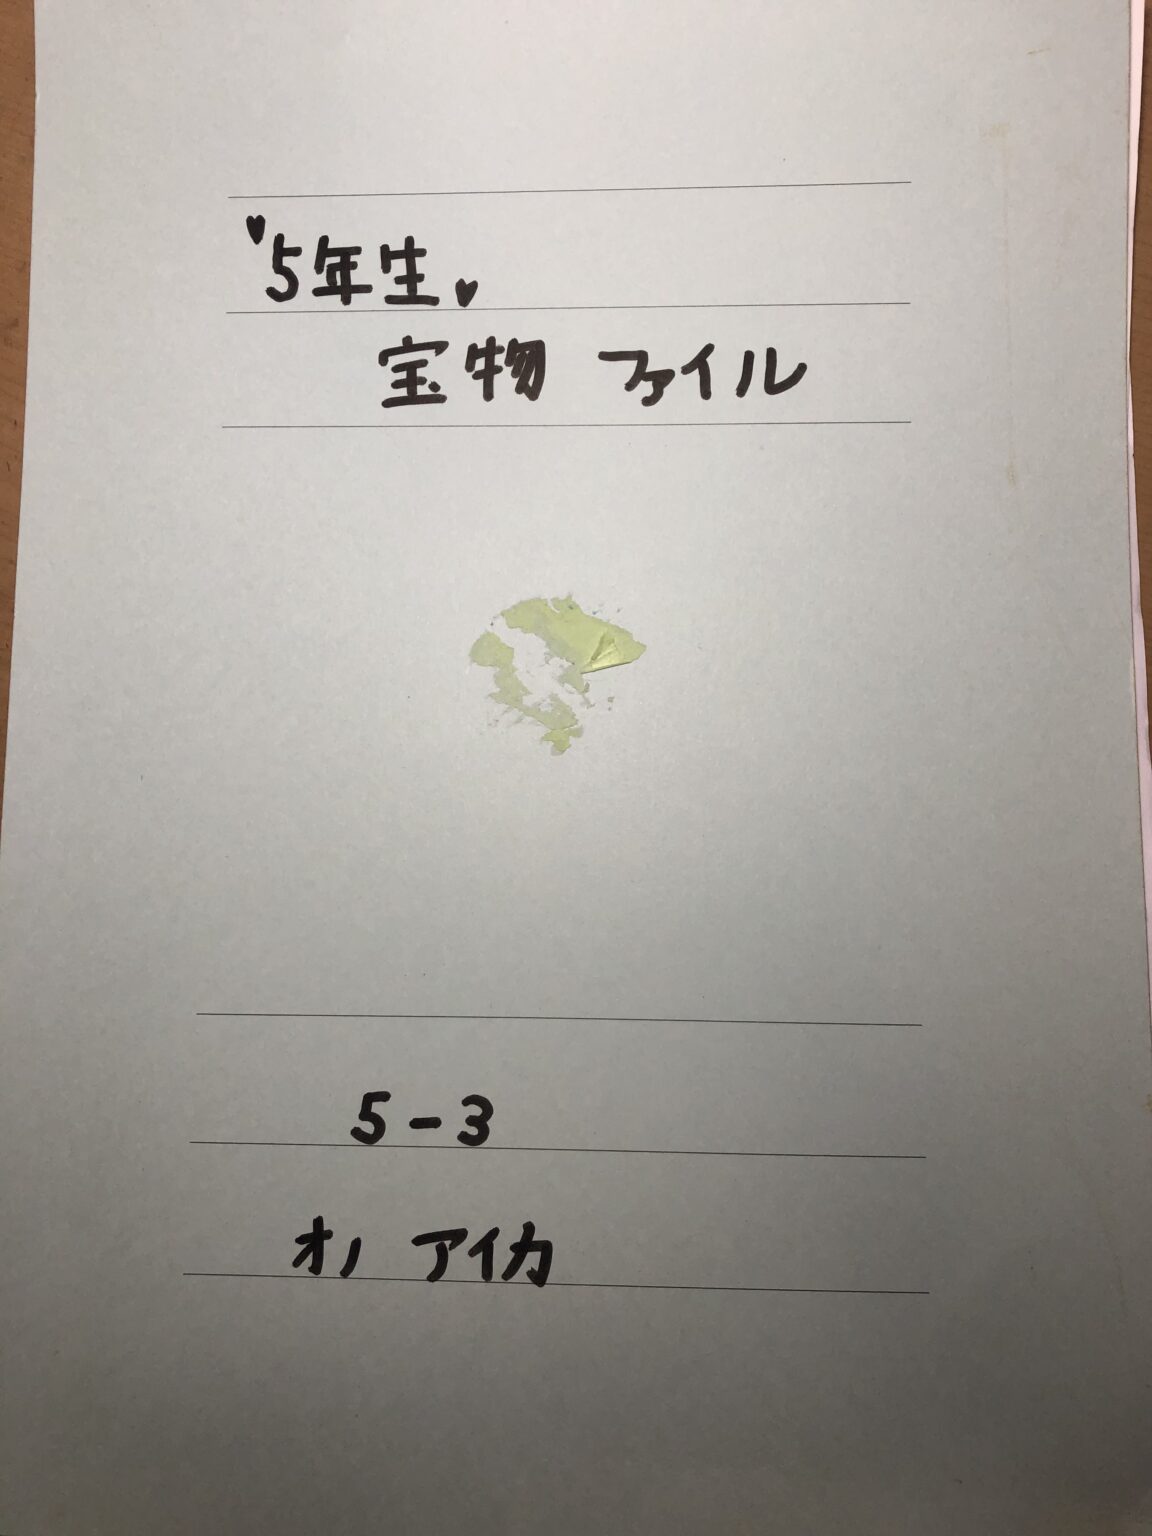 ♥5年生♥
宝物 ファイル
5-3
オノ アイカ